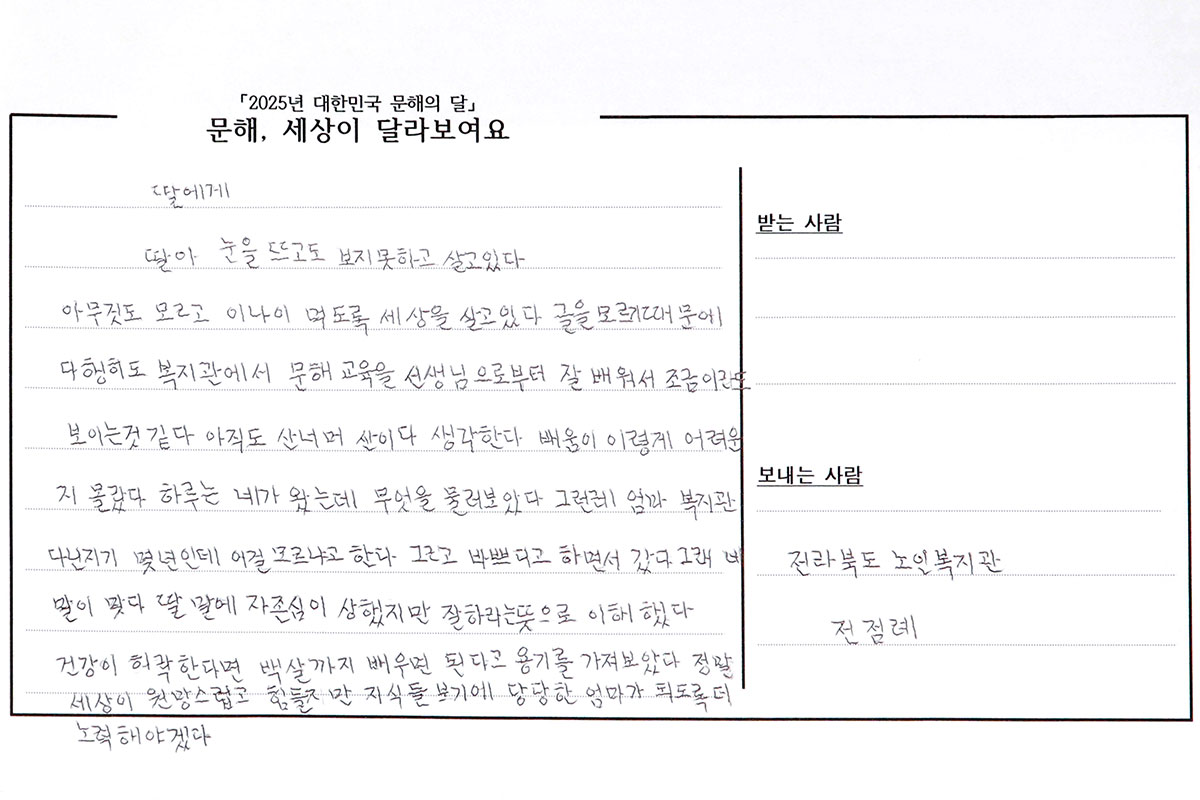 「2025년 대한민국 문해의 달」
문해, 세상이 달라보여요
딸에게
딸아 눈을 뜨고도 보지못하고 살고있다
아무것도 모르고 이나이 먹도록 세상을 살고있다 글을모르기때문에
다행히도 복지관에서 문해 교육을 선생님으로부터 잘 배워서 조금이란도
보이는것 같다 아직도 산너머 산이다 생각한다 배움이 이렇게 어려운
지 몰랐다 하루는 네가 왔는데 무엇을 물러보았다 그런레 엄마 복지관
다닌지가 몇년인데 이걸 모르냐고 한다 그르고 바쁘다고 하면서 갔다 그래 네
말이 맞다 딸 말에 자존심이 상했지만 잘하라는뜻으로 이해 했다
건강이 허락한다면 백살까지 배우면 된다고 용기를 가져보았다 정말
세상이 원망스럽고 힘들지만 자식들 보기에 당당한 엄마가 되도록더
노력해야겠다
받는 사람
보내는 사람
전라북도 노인복지관
전점례